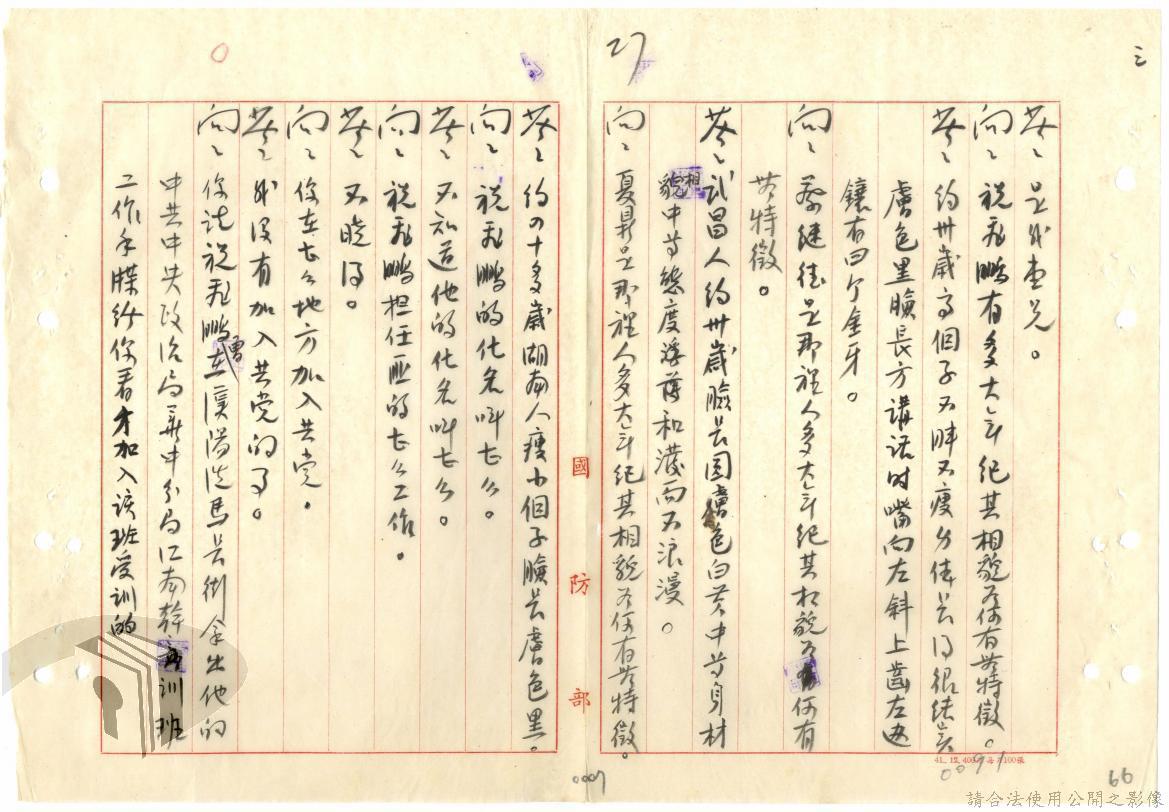 三
27
答、是我表兄。
問、祝飛鵬有多大年紀其相貌如何有無特徵。
答、約卅歲高個子不胖不瘦身体長得很結實
膚色黑臉長方講話時嘴向左斜上齒左边
鑲有四个金牙。
問、蔡継德是那裡人多大年紀其相貌如何有
無特徵。
答、武昌人約卅歲臉長圓膚色白黄中等身材
相貌中等態度浮蕩和藹而不浪漫。
問、夏鼎是那裡人多大年紀其相貌如何有無特徵。
國防部
答、約四十多歲湖南人瘦小個子臉長膚色黑。
問、祝飛鵬的化名叫七么。
答、不知道他的化名叫七么。
問、祝飛鵬担任匪的七么工作。
答、不曉得。
問、你在七么地方加入共党。
答、我没有加入共党的事。
問、你説祝飛鵬曾在漢陽洗馬長街拿出他的
中共中央政治局華中分局江南幹訓班
工作手牒給你看才加入該班受訓的
0007
0091
66
請合法使用公開之影像